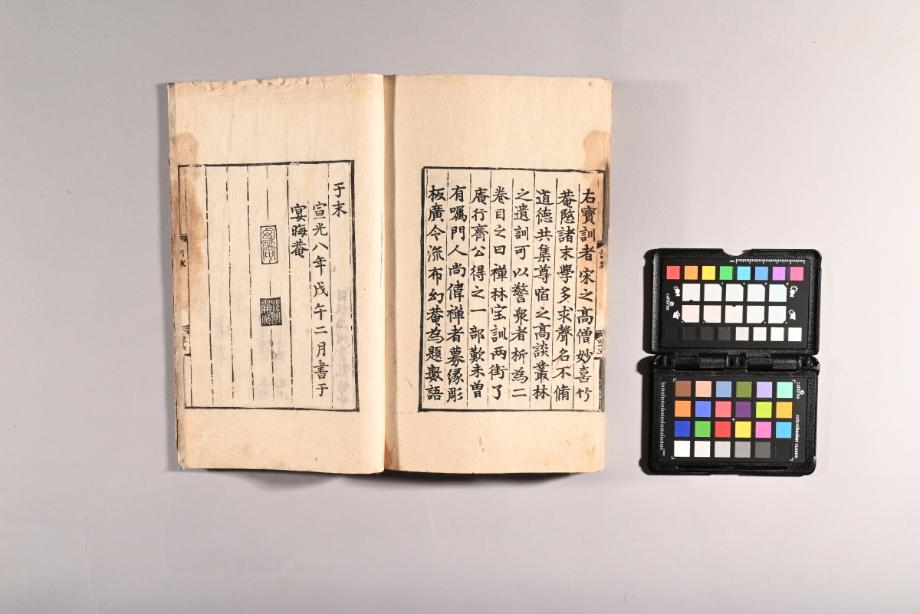 右寶訓者宋之高僧妙喜竹
菴愍諸末學多求聲名不脩
道德共集尊宿之高談叢林
之遺訓可以警衆者析爲二
卷目之曰禪林宝訓兩街了
庵行齊公得之一部歎未曽
有嘱門人尚偉禪者募縁彫
板廣令流布幻菴為題數語
于末
宣光八年戊午二月書于
宴晦菴